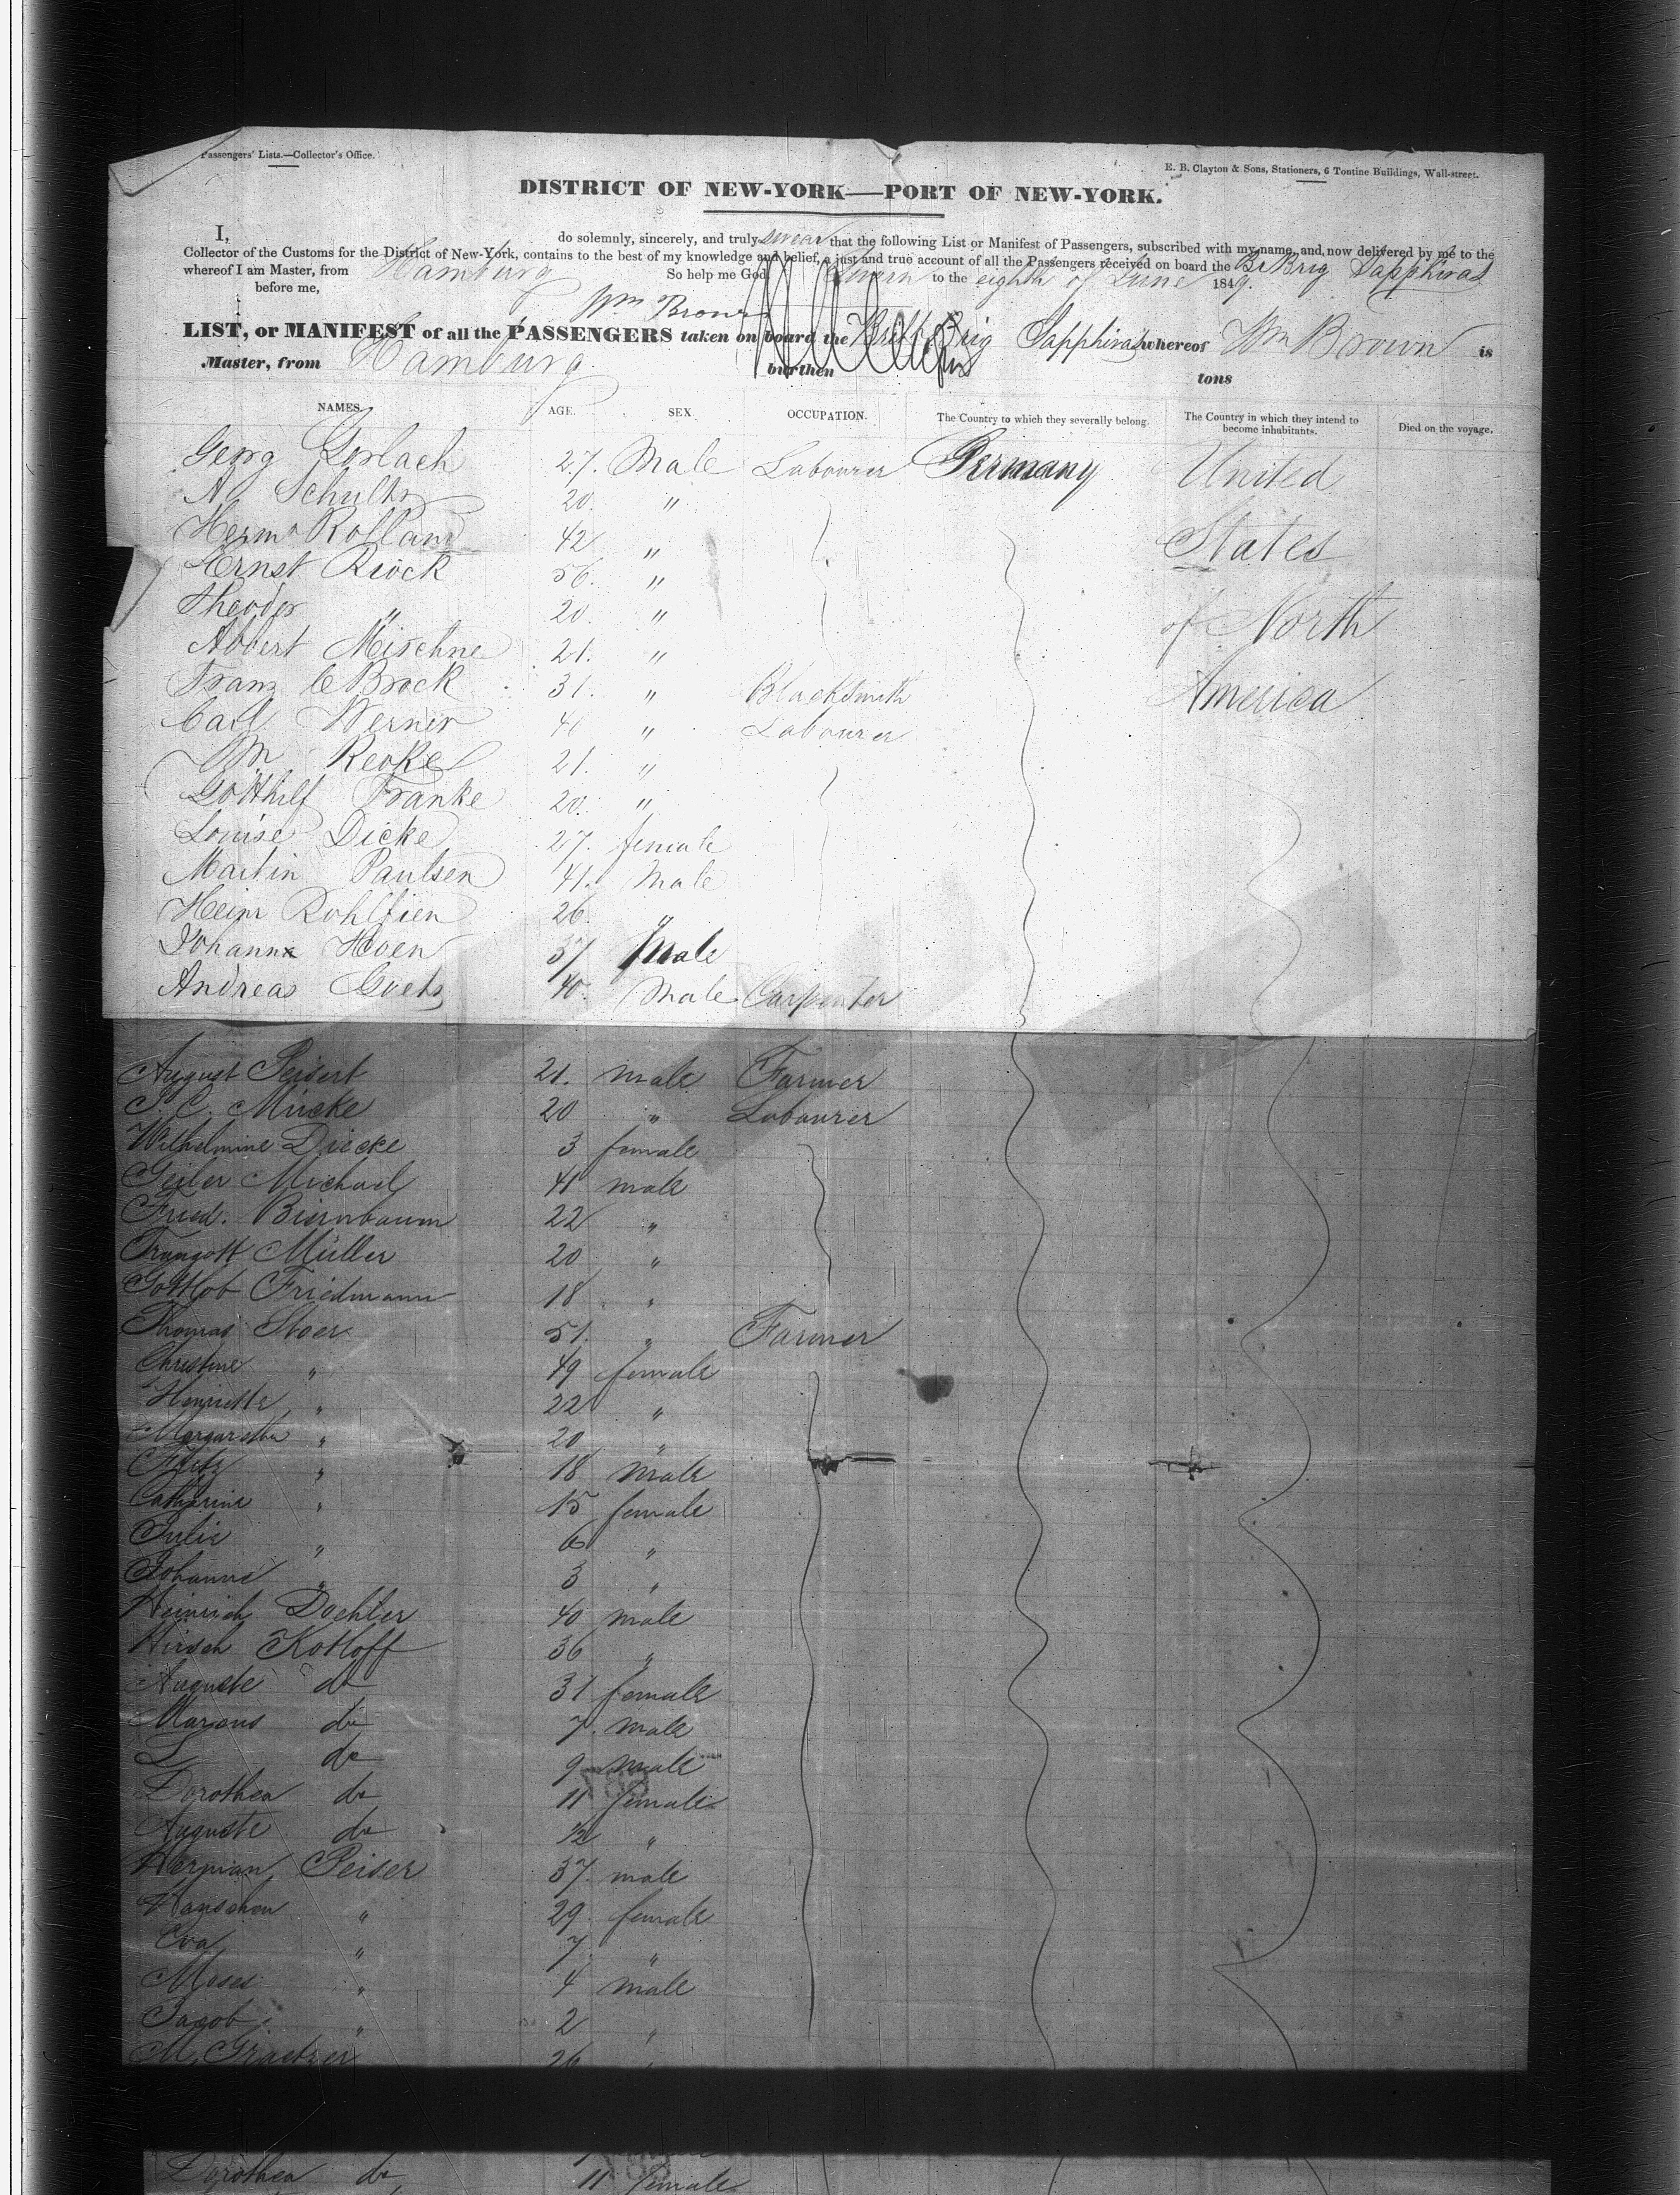 Passengers' Lists.—Collector's Office.
E. B. Clayton & Sons, Stationers, 6 Tontine Buildings, Wall-street.
DISTRICT OF NEW-YORK—PORT OF NEW-YORK.
I, do solemnly, sincerely, and truly swear that the following List or Manifest of Passengers, subscribed with my name, and now delivered by me to the
Collector of the Customs for the District of New-York, contains to the best of my knowledge and belief, a just and true account of all the Passengers received on board the Br Brig Sapphiras
whereof I am Master, from Hamburg So help me God.
Sworn to the eighth of June 1849.
before me,
Wm Brown
LIST, or MANIFEST of all the PASSENGERS taken on board the Brith Brig Sapphiras whereof Wm Brown is
Master, from Hamburg burthen tons
NAMES. AGE. SEX. OCCUPATION. The Country to which they severally belong. The Country in which they intend to become inhabitants. Died on the voyage.
Georg Gerlach 27. Male Labourer Germany United
A Schultz 20. "
Herm Rolland 42 " States
Ernst Riock 56. "
Theodor " 20. " of North
Albert Mischne 21. "
Franz C Brock 31. " Blacksmith America
Carl Werner " Labourer
Wm Reoke 21. "
Gotthilf Franke 20. "
Louise Dicke 27. female
Martin Paulsen 41. Male
Heinr Rohlfien 26. "
Johann Hoen 37 Male
Andreas Goetz 40. Male Carpenter
August Peisert 21. male Farmer
J. C. Mücke 20 " Labourer
Wilhelmine Diecke 3 female
Geiler Michael 41 male
Fried. Biernbaum 22 "
Traugott Müller 20 "
Gottlob Friedmann 18 "
Thomas Stoer 51. " Farmer
Christine " 49 female
Henriette " 22 "
Margaretha " 20 "
Fritz " 18 male
Catharine " 15 female
Julie " 6 "
Johanne " 3 "
Heinrich Dochler 40 male
Hirsch Kotloff 36 "
Auguste do 31 female
Marcus do 7. male
L do 9 male
Dorothea do 11 female
Auguste do 1/2 "
Herman Peiser 37. male
Hanschen " 29. female
Eva " 7. "
Moses " 4 male
Jacob " 2 "
M. Graetzer 26 "
Dorothea do 11 female